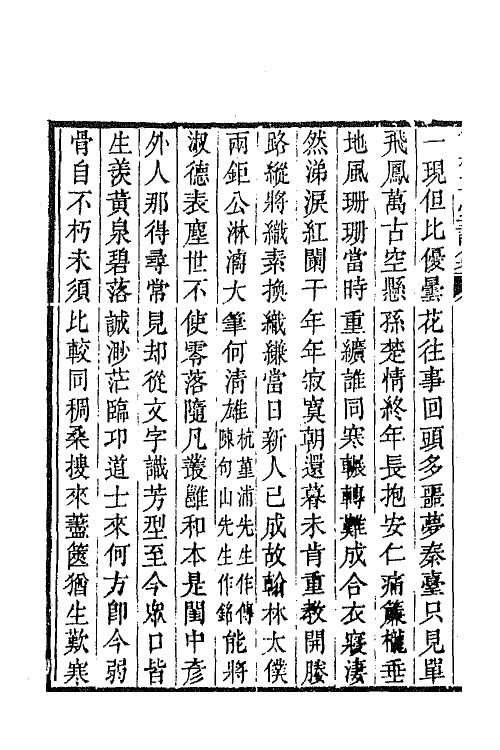 一現但比優曇花往事回頭多噩夢秦臺只見單
飛鳳萬古空懸孫楚情終年長抱安仁痛簾櫳垂
地風珊珊當時重纊誰同寒輾轉難成合衣寢淒
然涕淚紅闌干年年寂寞朝還暮未肯重教開縢
路縱將織素換織縑當日新人已成故翰林太僕
兩鉅公淋漓大筆何清雄杭菫浦先生作傳陳句山先生作銘能將
淑德表塵世不使零落隨凡叢雝和本是閨中彥
外人那得尋常見却從文字識芳型至今眾口皆
生羨黃泉碧落誠渺茫臨卭道士來何方卽今弱
骨自不朽未須比較同稠桑搜來藎篋猶生歎寒